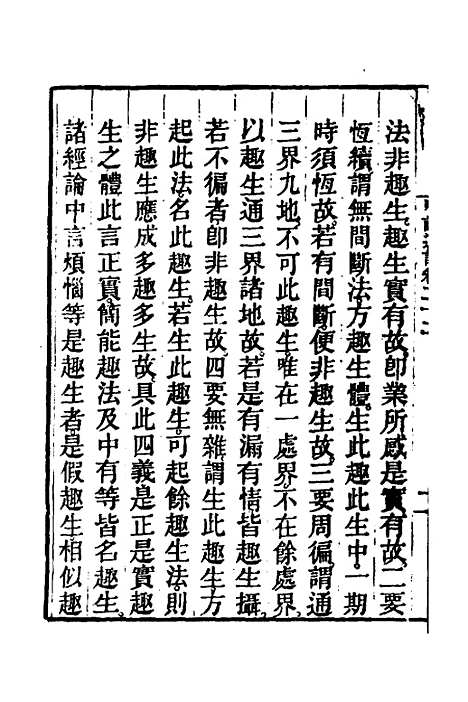 法非趣生趣生實有故卽業所感是實有故二要
恆續謂無間斷法方趣生體生此趣生中一期
時須恆故若有間斷便非趣生故三要周徧謂通
三界九地不可此趣生唯在一處界不在餘處界
以趣生通三界諸地故若是有漏有情皆趣生攝
若不徧者卽非趣生故四要無雜謂生此趣生方
起此法名此趣生若生此趣生可起餘趣生法則
非趣生應成多趣多生故具此四義是正是實趣
生之體此言正實簡能趣法及中有等皆名趣生
諸經論中言煩惱等是趣生者是假趣生相似趣